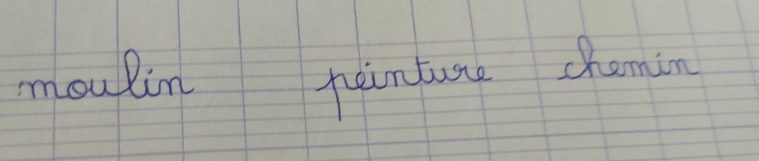 moulin peinture chemin